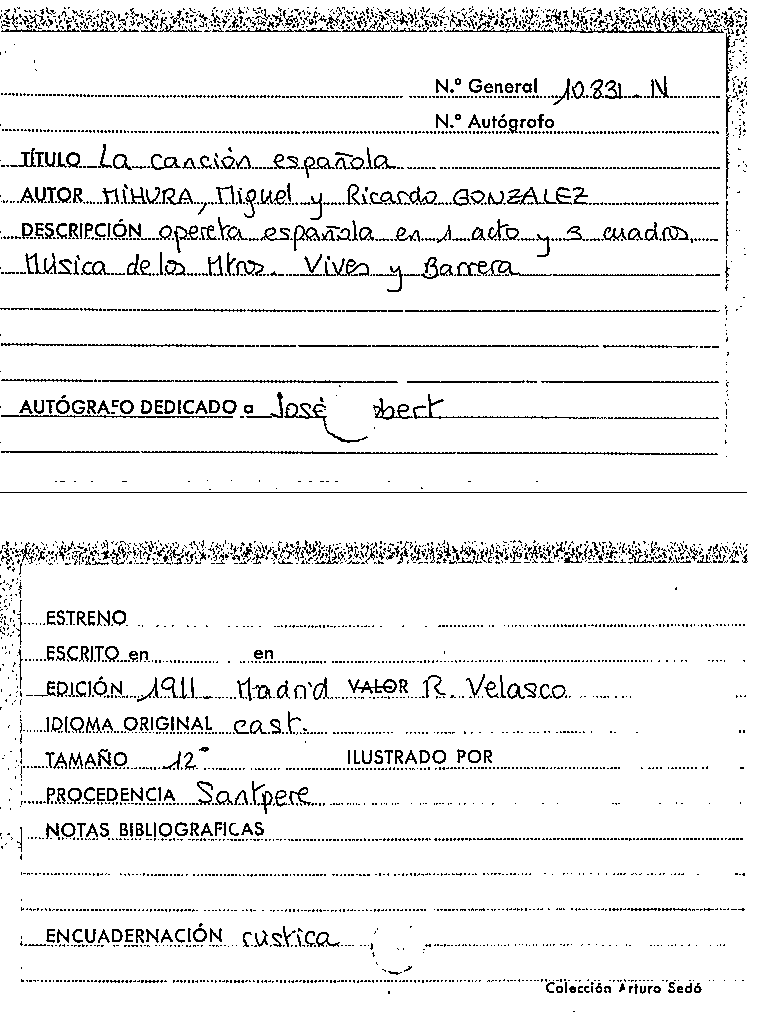 N.º General 10.831 - N
N.º Autógrafo
TÍTULO La canción española
AUTOR MIHURA, Miguel y Ricardo GONZALEZ
DESCRIPCIÓN opereta española en 1 acto y 3 cuadros.
Música de los Mtros. Vives y Barrera
AUTÓGRAFO DEDICADO a José
ESTRENO
ESCRITO en en
EDICIÓN 1911 - Madrid VALOR R. Velasco
IDIOMA ORIGINAL cast.
TAMAÑO 12º ILUSTRADO POR
PROCEDENCIA Santpere
NOTAS BIBLIOGRAFICAS
ENCUADERNACIÓN rustica
Colección Arturo Sedó